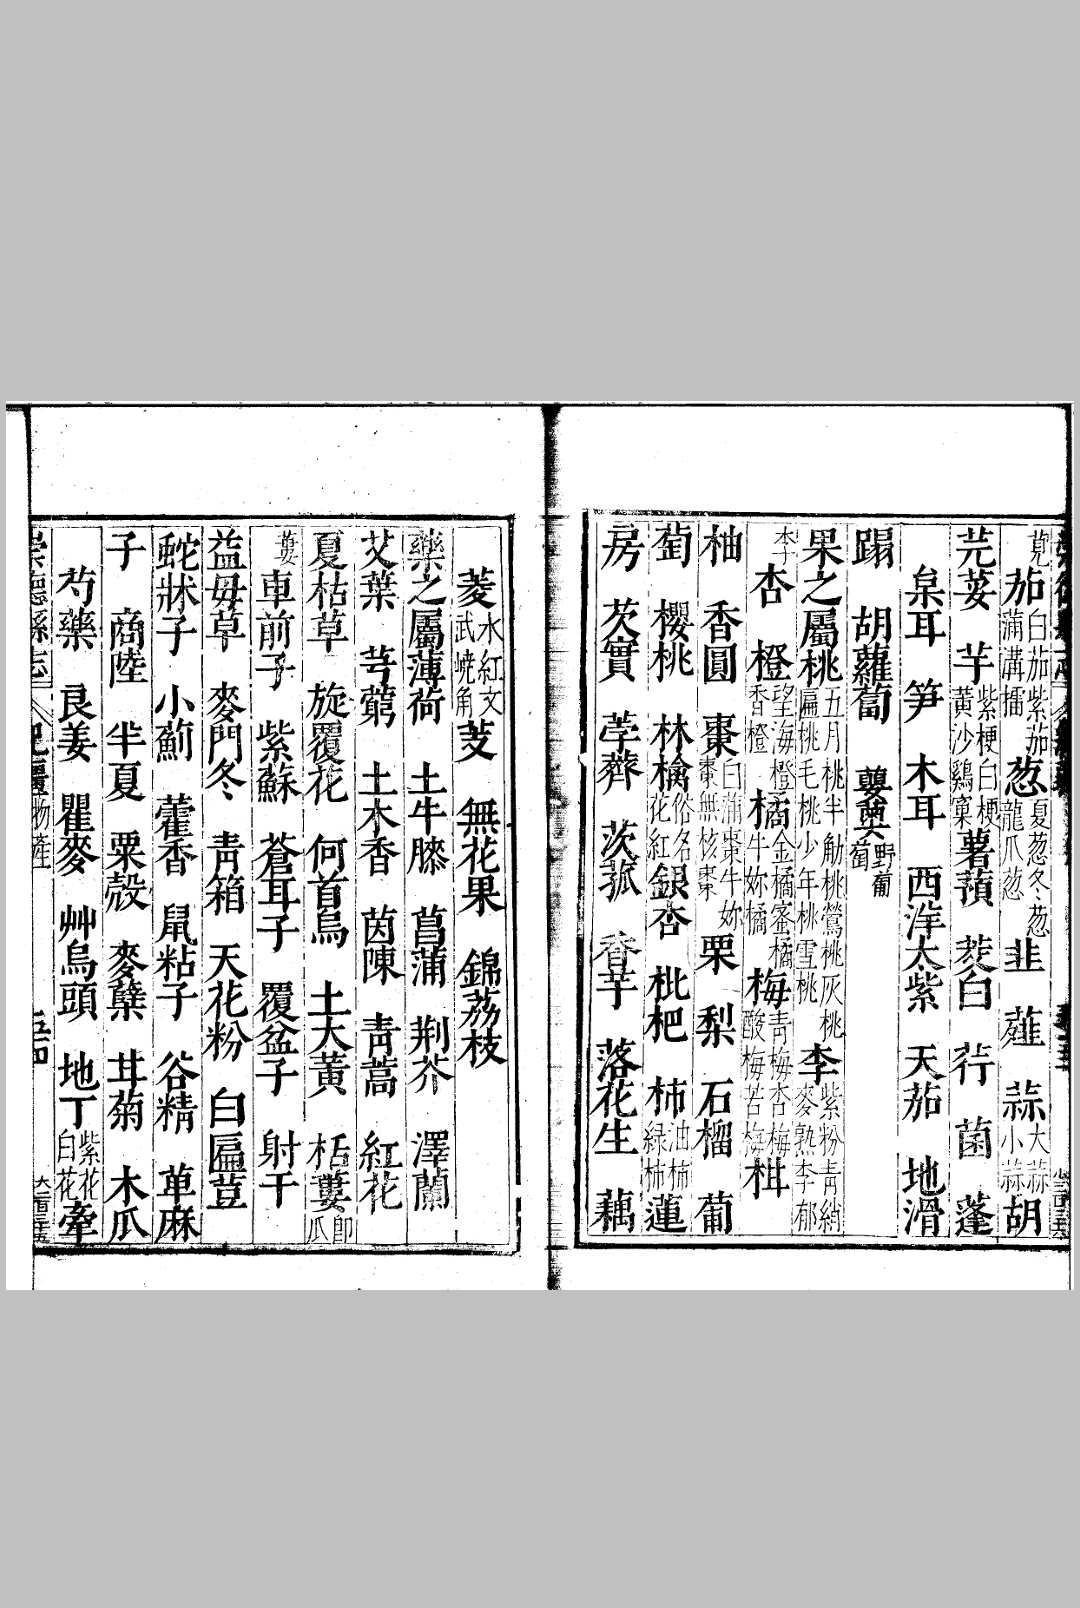 莧 茄白茄紫茄蒲溝擂 葱夏葱冬葱龍爪葱 韭 薤 蒜大蒜小蒜 胡
荒荽 芋紫梗白梗黃沙鷄窠 薯蕷 茭白 荇 菌 蓬
臯耳 笋 木耳 西洋太紫 天茄 地滑
蹋 胡蘿蔔 蘡薁野葡萄
果之屬桃五月桃半觔桃鶯桃灰桃匾桃毛桃少年桃雪桃 李紫粉青綃麥熟李郁
李 杏 橙望海橙香橙 橘金橘蜜橘牛妳橘 梅青梅杏梅酸梅苦梅 椒
柚 香圓 棗白蒲棗牛妳棗無核棗 栗 梨 石榴 葡
萄 櫻桃 林檎俗名花紅 銀杏 枇杷 柿油柿綠柿 蓮
房 芡實 荸薺 茨菰 香芋 落花生 藕
菱水紅文武燒角 芰 無花果 錦荔枝
藥之屬薄荷 土牛膝 菖蒲 荆芥 澤蘭
艾葉 芎藭 土木香 茵陳 青蒿 紅花
夏枯草 旋覆花 何首烏 土大黃 栝蔞即瓜
蔞 車前子 紫蘇 蒼耳子 覆盆子 射干
益毋草 麥門冬 青箱 天花粉 白匾荳
蛇牀子 小薊 藿香 鼠粘子 谷精 萆麻
子 商陸 半夏 粟殼 麥蘗 甘菊 木瓜
芍藥 良姜 瞿麥 艸烏頭 地丁紫花白花 牽
崇德縣志 紀疆 物產